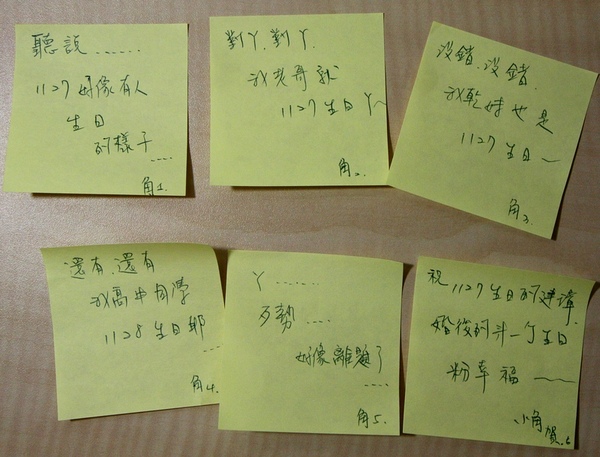 聽說......
1127好像有人
生日
的樣子
....
角1.
對ㄚ.對ㄚ.
我老哥就
1127生日ㄚ~
角2.
沒錯.沒錯.
我乾妹也是
1127生日~
角3.
還有.還有
我高中同學
1128生日耶
...
角4.
ㄚ......
歹勢....
好像離題了
....
角5.
祝1127生日的建瑋.
婚後的第一个生日
粉幸福~
小角賀.6